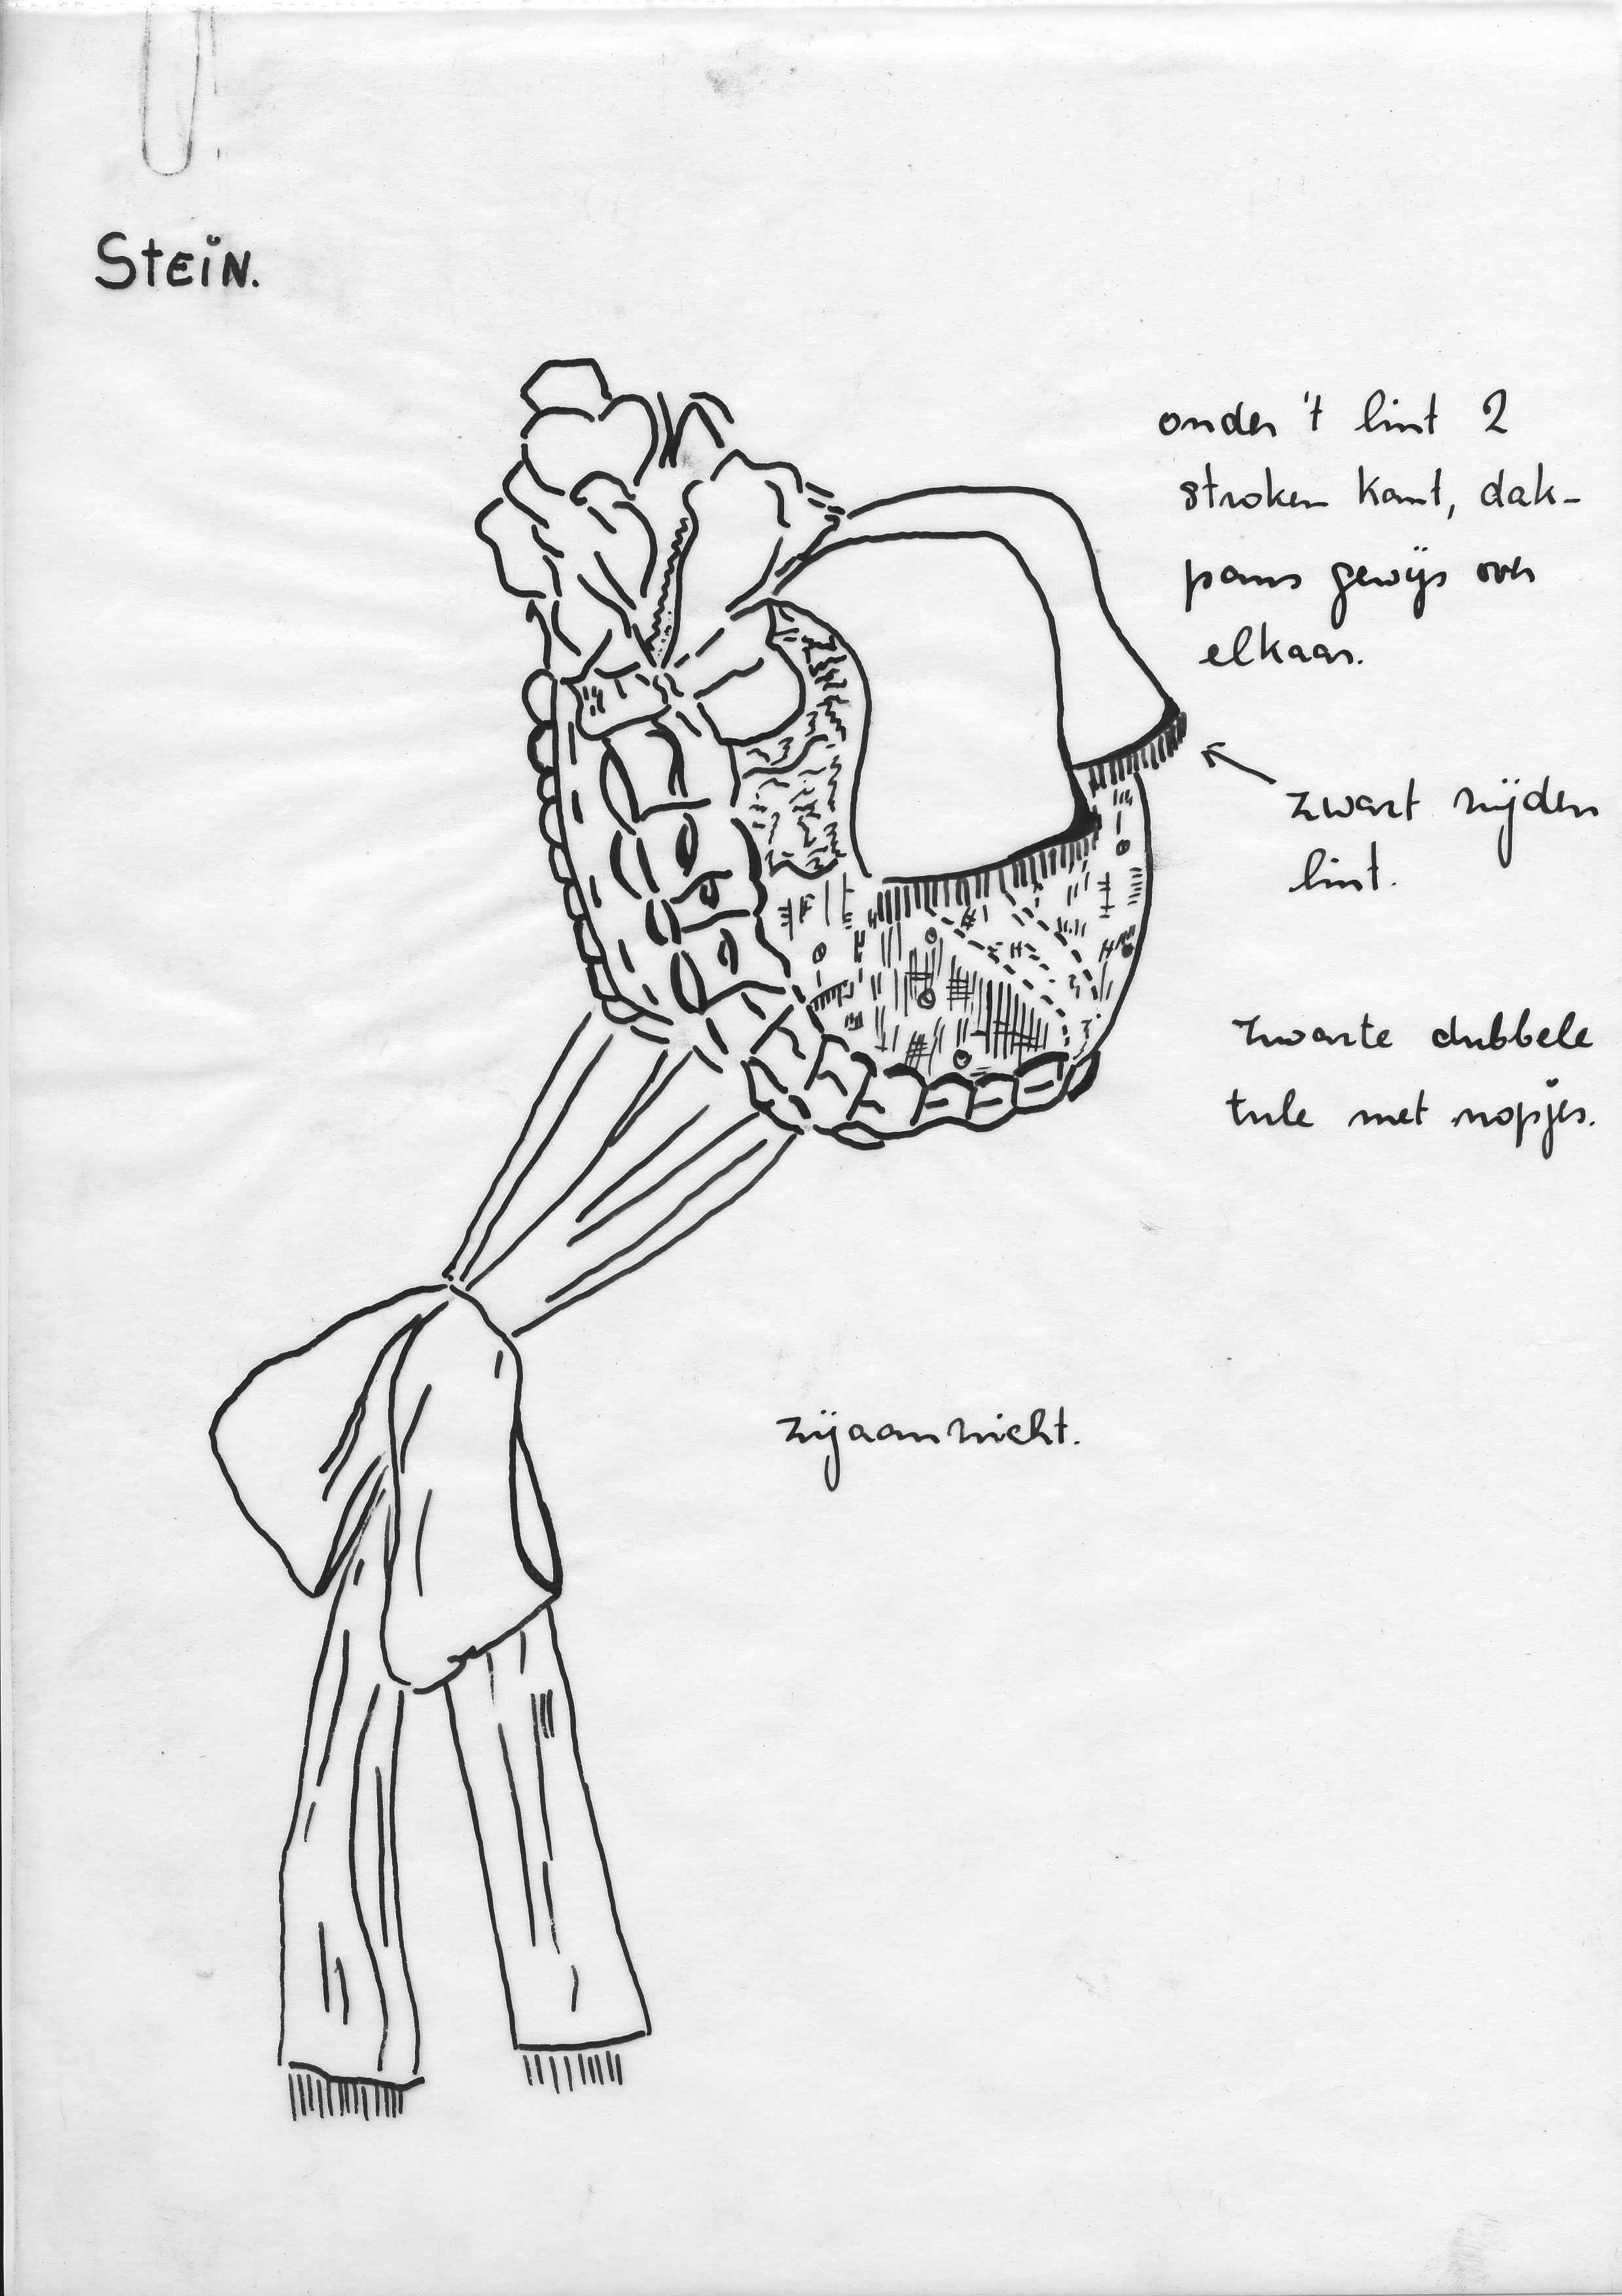 Stein.
onder 't lint 2
stroken kant, dak-
pans gewijs over
elkaar.
zwart zijden
lint.
zwarte dubbele
tule met nopjes.
zijaanzicht.